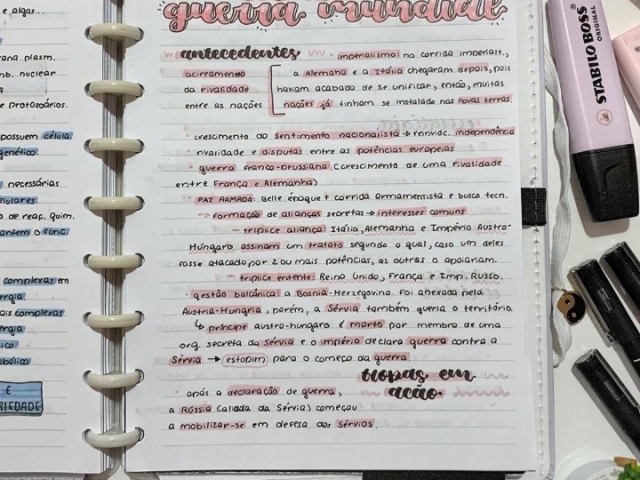 e algas...
na plasm.
mb. nuclear
a
e protozoários.
possuem célula
genético.
necessárias
elulares
o de reaç. quim.
antem o func.
complexas em
ergia
ais complexas
ergia
ico
abólico
E
RIEDADE
guerra mundial
antecedentes
· imperialismo: na corrida imperialt.,
acirramento da rivalidade entre as nações
a Alemanha e a Itália chegaram depois, pois
haviam acabado de se unificar, então, muitas
nações já tinham se instalado nas novas terras.
· crescimento do sentimento nacionalista → reinvidc. independência
· rivalidade e disputas entre as potências europeias
· guerra franco-prussiana (crescimento de uma rivalidade
entre França e Alemanha)
· PAZ ARMADA: Belle époque + corrida armamentista e busca tecn.
→ formação de alianças secretas → interesses comuns
– tríplice aliança: Itália, Alemanha e Império Austro-
Húngaro assinam um tratato segundo o qual, caso um deles
fosse atacado por 2 ou mais potências, as outras o apoiariam.
– tríplice entente: Reino Unido, França e Imp. Russo.
· questão balcânica: a Bosnia-Herzegovina foi anexada pela
Austria-Hungria, porém, a Sérvia também queria o território.
↳ príncipe austro-húngaro é morto por membro de uma
org. secreta da Sérvia e o império declara guerra contra a
Sérvia → estopim para o começo da guerra.
tropas em
ação
após a declaração de guerra,
a Rússia (aliada da Sérvia) começou
a mobilizar-se em defesa dos sérvios.
STABILO BOSS
ORIGINAL